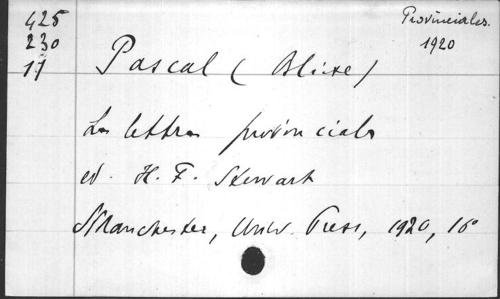 425
230
17
Provinciales.
1920
Pascal (Blaise)
Les lettres provinciales
ed. H. F. Stewart
Manchester, Univ. Press, 1920, 16°